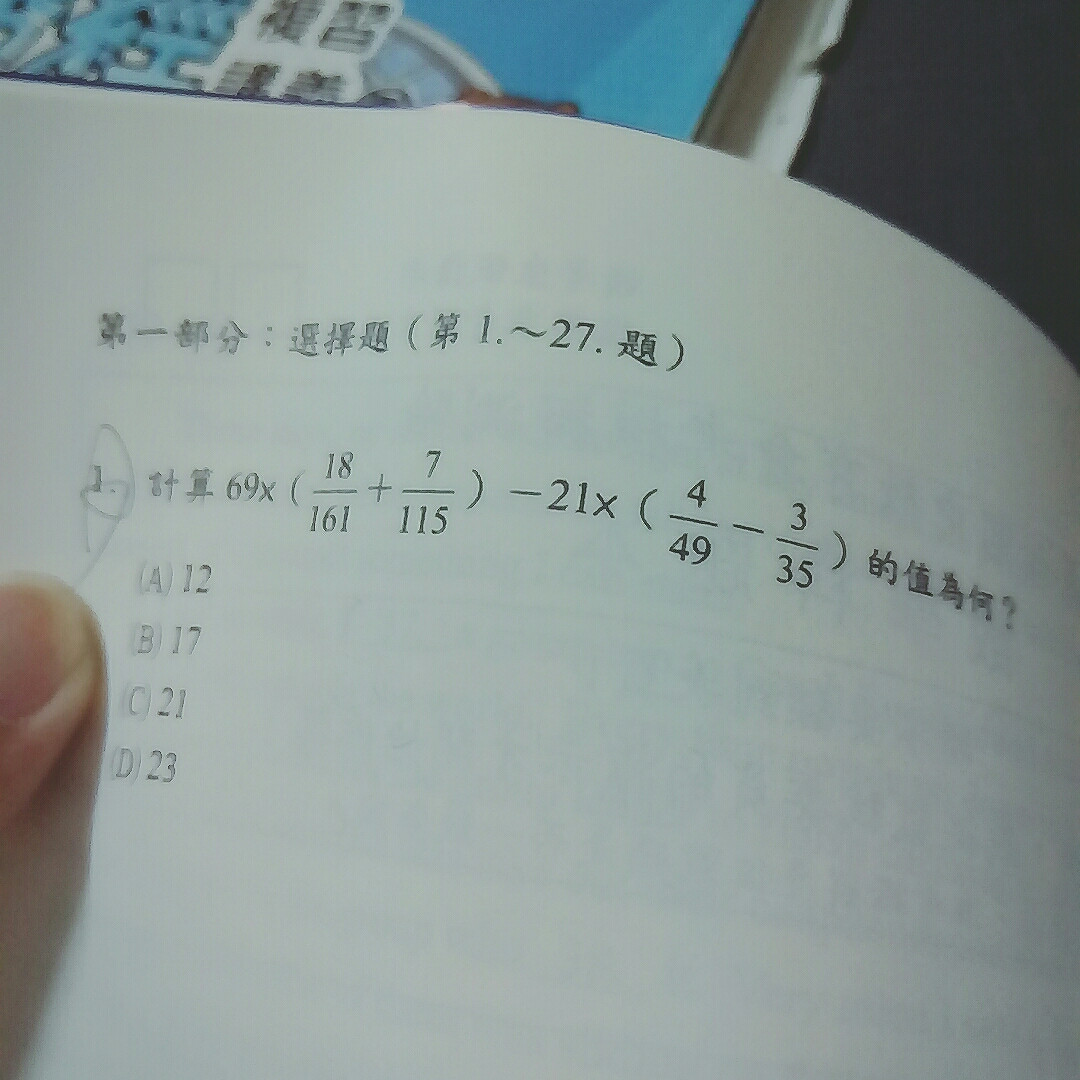 複習
講義
第一部分：選擇題（第 1.～27. 題）
1. 計算 69×（18/161＋7/115）－21×（4/49－3/35）的值為何？
(A) 12
(B) 17
(C) 21
(D) 23